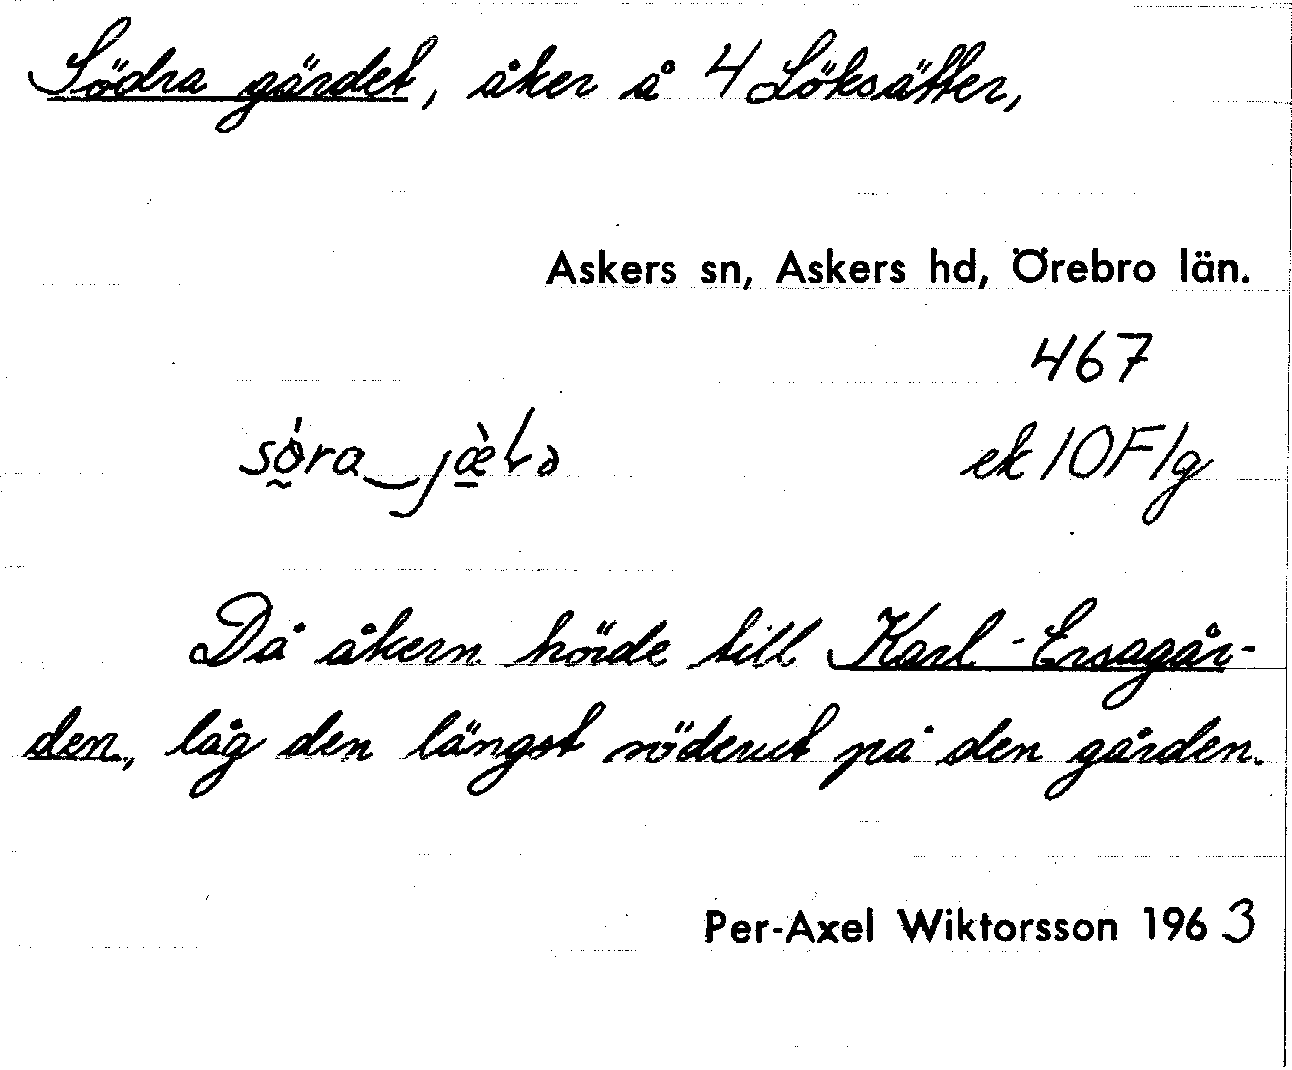 Södra gärdet, åker å 4 Löksätter,
Askers sn, Askers hd, Örebro län.
467
ek 10F1g
Då åkern hörde till Karl-Ersagår-
den, låg den längst söderut på den gården.
Per-Axel Wiktorsson 1963